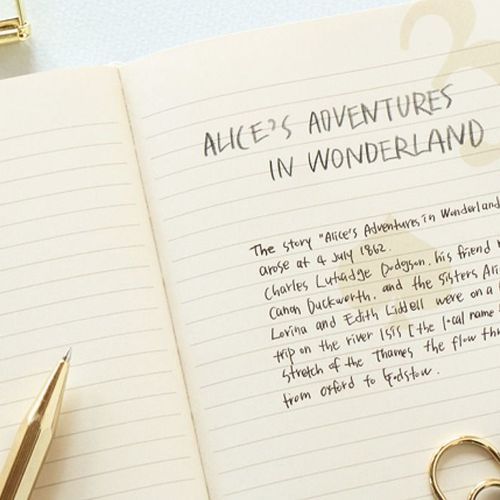 ALICE'S ADVENTURES
IN WONDERLAND
The story "Alice's Adventures in Wonderland
arose at 4 July 1862.
Charles Lutwidge Dodgson, his friend
Canon Duckworth, and the sisters Ali
Lorina and Edith Liddell were on a
trip on the river Isis [the local name
stretch of the Thames the flow thr
from Oxford to Godstow.